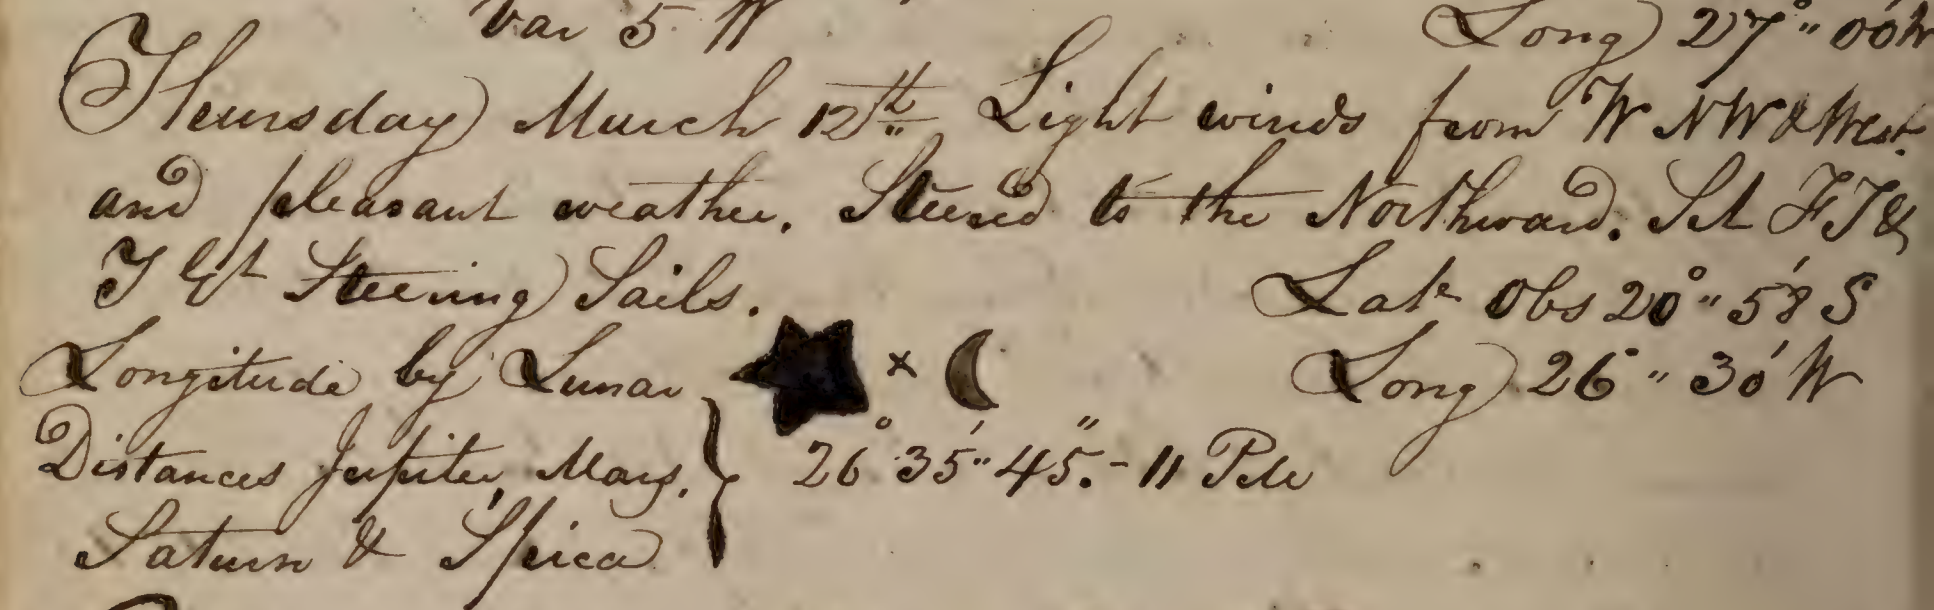 Var 5 W Long 27°" 00 W
Thursday March 12th Light winds from W NW & West
and pleasant weather. Steered to the Northward. Set F T &
T Gt Steering Sails. Lat Obs 20°" 58' S
Longitude by Lunar × Long 26°" 30' W
Distances Jupiter, Mars, } 26° 35'" 45". - 11 PM
Saturn & Spica